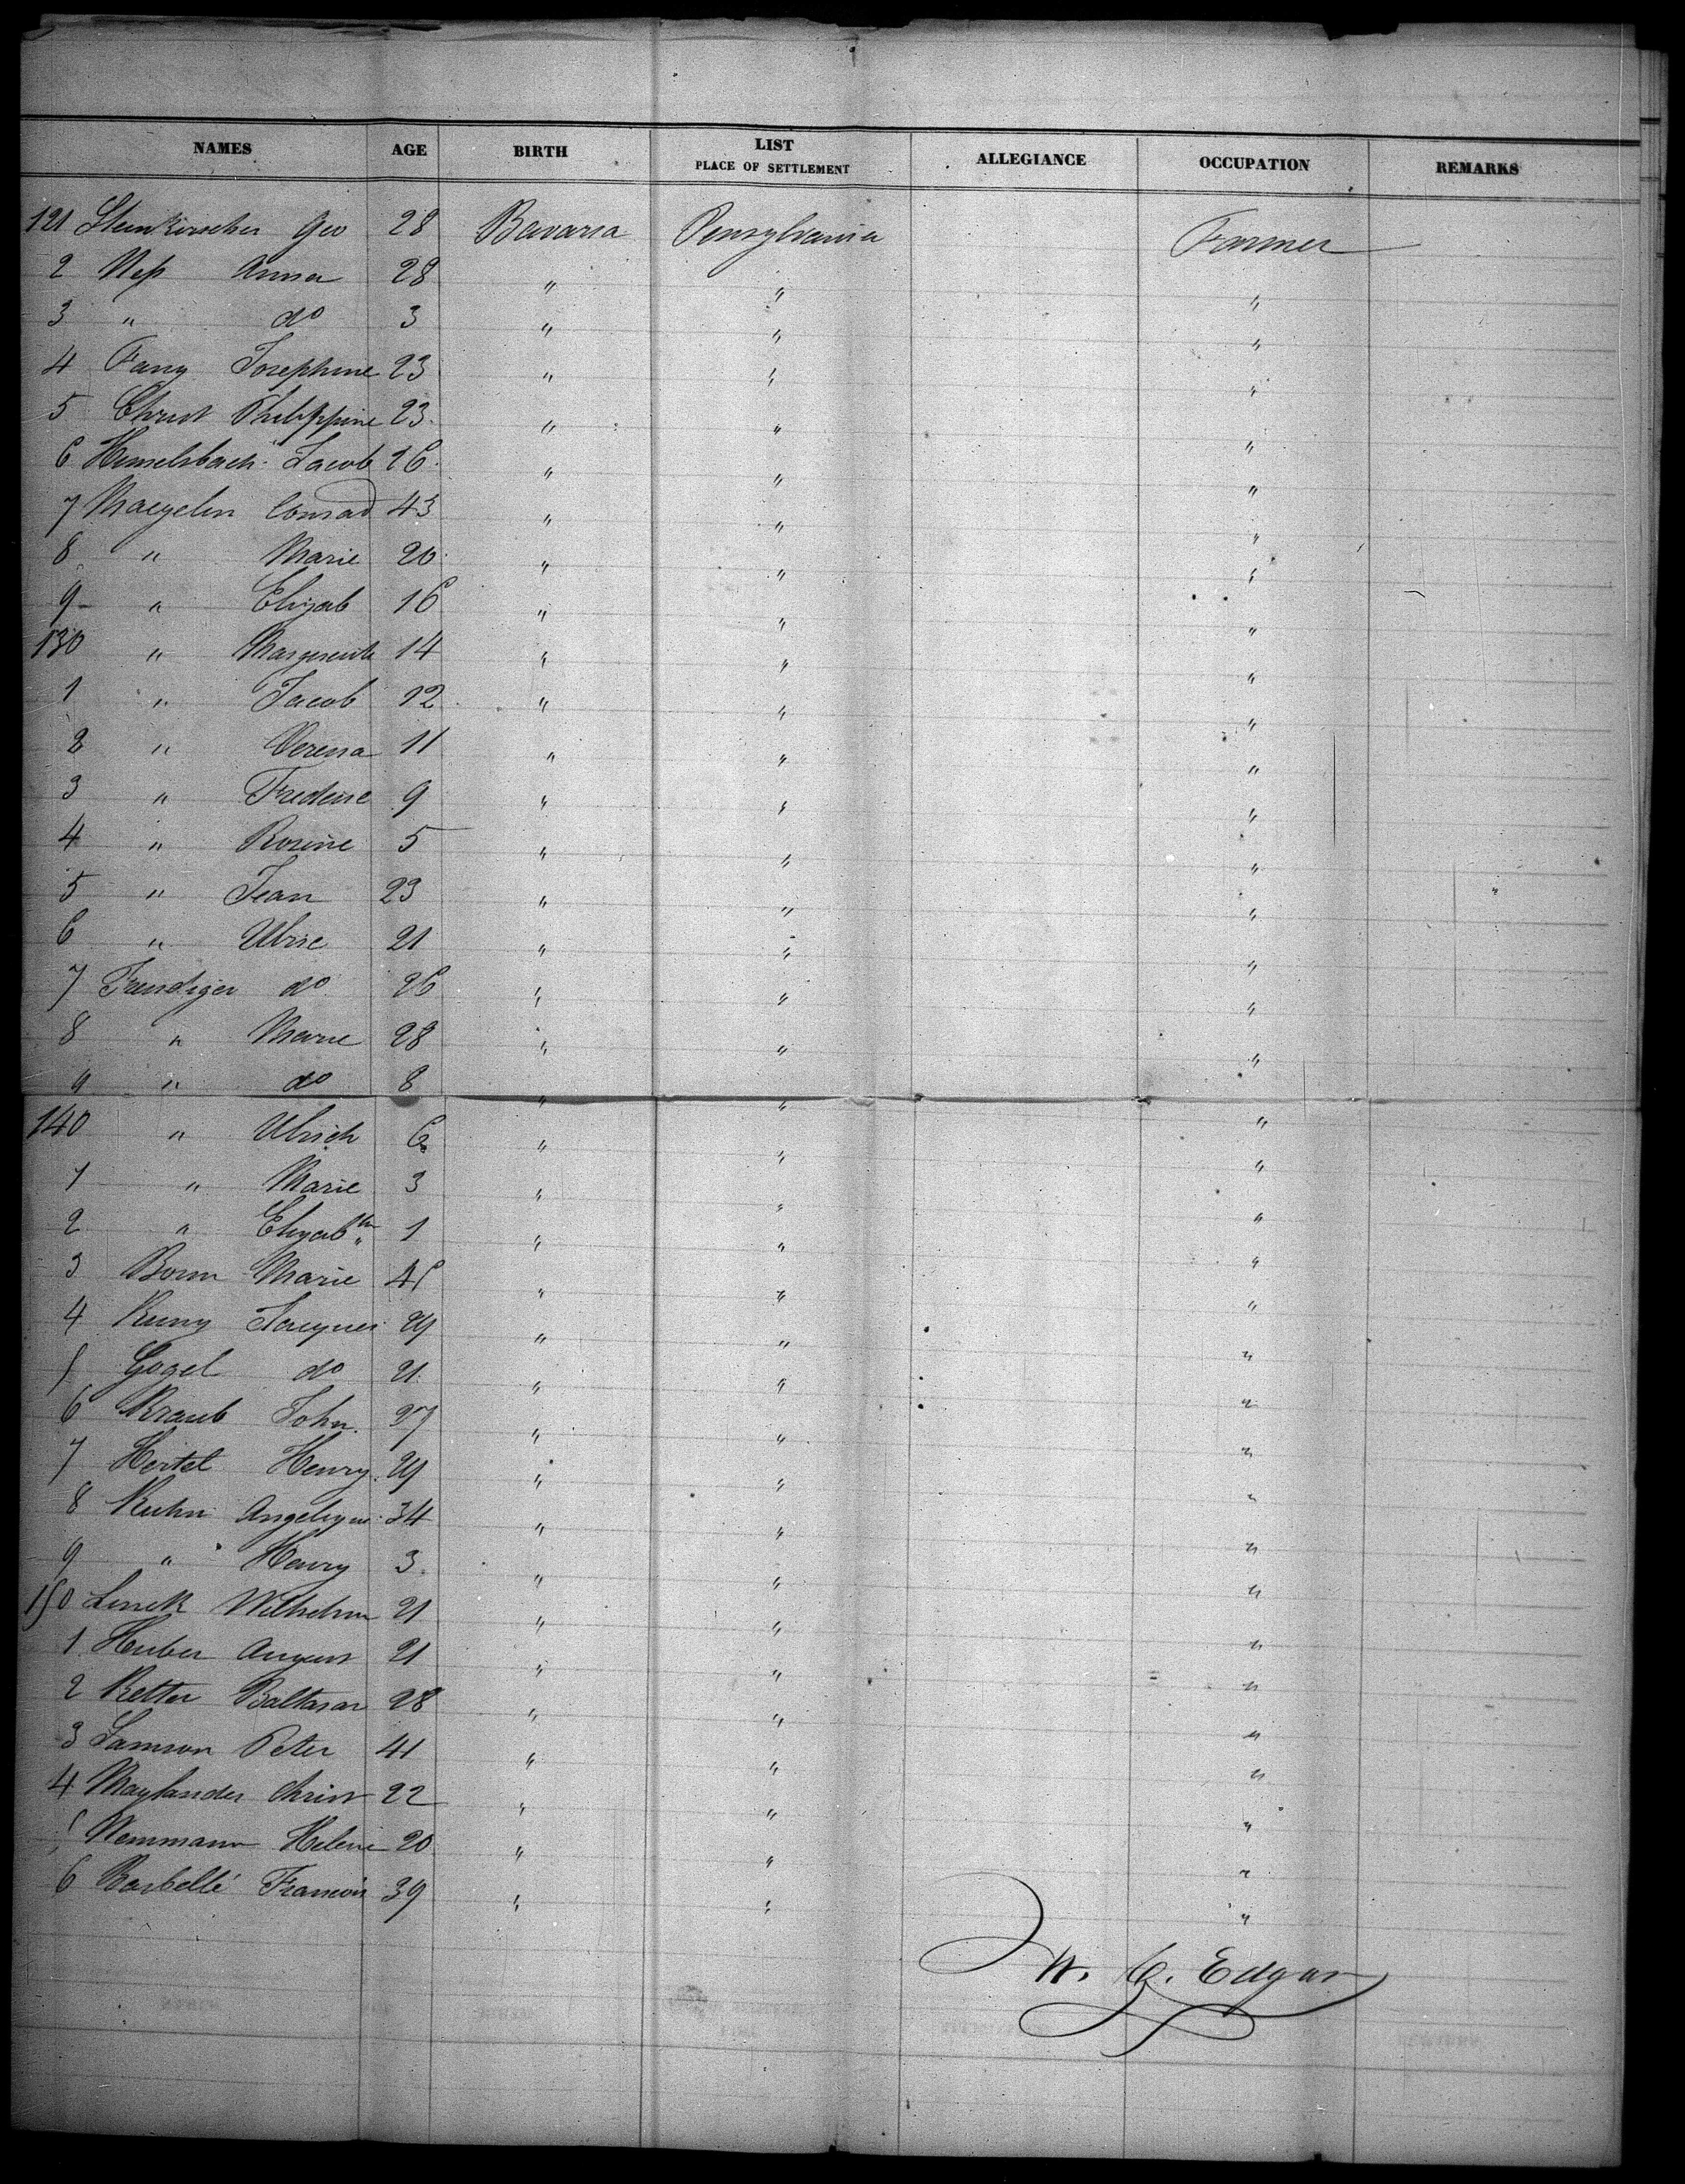 NAMES AGE BIRTH LIST PLACE OF SETTLEMENT ALLEGIANCE OCCUPATION REMARKS
121 Steinkirscher Geo 28 Bavaria Pensylvania Farmer
2 Ness Anna 28 " " "
3 " do 3 " " "
4 Fany Josephine 23 " " "
5 Christ Philippine 23 " " "
6 Himselsbach Jacob 26 " " "
7 Maegelin Conrad 43 " " "
8 " Marie 20 " " "
9 " Elizab 16 " " "
130 " Marguerite 14 " " "
1 " Jacob 12 " " "
2 " Verena 11 " " "
3 " Frederic 9 " " "
4 " Rosine 5 " " "
5 " Jean 23 " " "
6 " Ulric 21 " " "
7 Frendiger do 26 " " "
8 " Marie 28 " " "
9 " do 8 " " "
140 " Ulrich 6 " " "
1 " Marie 3 " " "
2 " Elizabth 1 " " "
3 Born Marie " " "
4 Kuny Jacques 29 " " "
5 Gogel do 21 " " "
6 Kraub John 27 " " "
7 Hertel Henry 29 " " "
8 Kuhn Angelique 34 " " "
9 " Henry 3 " " "
150 Linck Wilhelm 21 " " "
1 Huber August 21 " " "
2 Retter Baltasar 28 " " "
3 Samson Peter 41 " " "
4 Maylander Christ 22 " " "
5 Nemmann Helene 20 " " "
6 Barbellé Francois 39 " " "
W. C. Edgar